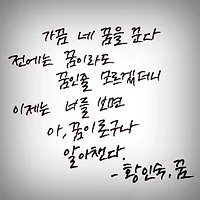 가끔 네 꿈을 꾼다
전에는 꿈이라도
꿈인줄 모르겠더니
이제는 너를 보면
아, 꿈이로구나
알아챈다.
- 황인숙, 꿈